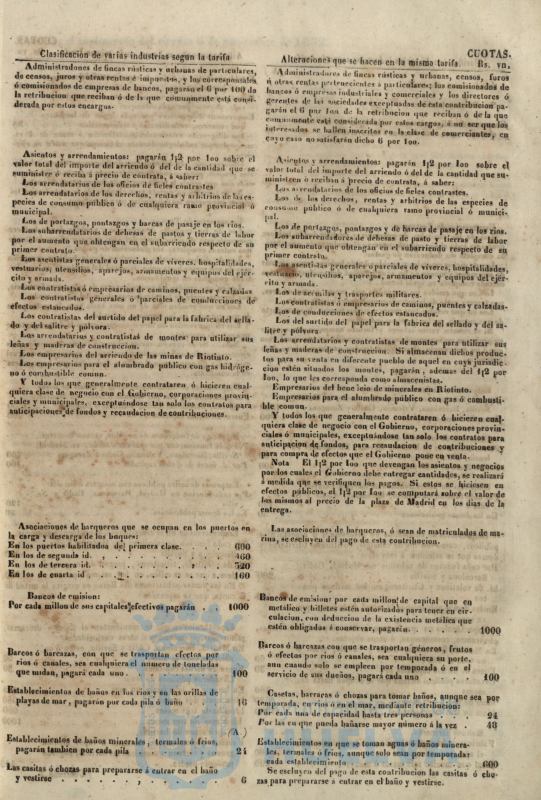 Clasificación de varias industrias segun la tarifa
Administradones de fincas rústicas y urbanas de particulares,
de censos, juros y otras rentas é impuestos, y los corresponsales
ó comisionados de empresas de bancos, pagarán el 6 por 100 de
la retribucion que reciban ó de la que comunmente está consi-
derada por estos encargos.
Asientos y arrendamientos: pagarán 1|2 por 100 sobre el
valor total del importe del arriendo ó del de la cantidad que se
suministre ó reciba á precio de contrata, á saber:
Los arrendatarios de los oficios de fieles contrastes
Los arrendatarios de los derechos, rentas y arbitrios de las es-
pecies de consumo público ó de cualquiera ramo provincial ó
municipal.
Los de portazgos, pontazgos y barcas de pasaje en los rios.
Los subarrendatarios de dehesas de pastos y tierras de labor
por el aumento que obtengan en el subarriendo respecto de su
primer contrato.
Los asentistas generales ó parciales de víveres, hospitalidades,
vestuarios, utensilios, aparejos, armamentos y equipos del ejér-
cito y armada.
Los contratistas ó empresarios de caminos, puentes y calzadas
Los contratistas generales ó parciales de conducciones de
efectos estancados.
Los contratistas del surtido del papel para la fabrica del sella-
do y del salitre y pólvora.
Los arrendatarios y contratistas de montes para utilizar sus
leñas y maderas de construccion.
Los empresarios del arriendo de las minas de Riotinto.
Los empresarios para el alumbrado público con gas hidróge-
no ó combustible comun.
Y todos los que generalmente contrataren ó hicieren cual-
quiera clase de negocio con el Gobierno, corporaciones provin-
ciales y municipales, exceptuándose tan solo los contratos para
anticipaciones de fondos y recaudacion de contribuciones.
Asociaciones de barqueros que se ocupan en los puertos en
la carga y descarga de los buques:
En los puertos habilitados de primera clase. . . . 600
En los de segunda id. . . . 460
En los de tercera id. . . . 320
En los de cuarta id . . . 160
Bancos de emision:
Por cada millon de sus capitales efectivos pagarán . 1000
Barcos ó barcazas, con que se trasportan efectos por
rios ó canales, sea cualquiera el numero de toneladas
que midan, pagará cada uno. . . . 100
Establecimientos de baños en los rios y en las orillas de
playas de mar, pagarán por cada pila ó baño 16
(A.)
Establecimientos de baños minerales, termales ó frios,
pagarán tambien por cada pila . . . 24
Las casitas ó chozas para prepararse á entrar en el baño
y vestirse . . . . 6
CUOTAS.
Alteraciones que se hacen en la misma tarifa Rs. vn.
Administradores de fincas rústicas y urbanas, censos, foros
ú otras rentas pertenecientes a particulares; los comisionados de
bancos ó empresas industriales y comerciales y los directores ó
gerentes de las sociedades exceptuadas de esta contribucion pa-
garán el 6 por 100 de la retribucion que reciban ó de la que
comunmente esté considerada por estos cargos, á no ser que los
interesados se hallen inscritos en la clase de comerciantes, en
cuyo caso no satisfarán dicho 6 por 100.
Asientos y arrendamientos: pagarán 1|2 por 100 sobre el
valor total del importe del arriendo ó del de la cantidad que su-
ministren ó reciban á precio de contrata, á saber:
Los arrendatarios de los oficios de fieles contrastes.
Los de los derechos, rentas y arbitrios de las especies de
consumo público ó de cualquiera ramo provincial ó munici-
pal.
Los de portazgos, pontazgos y de barcas de pasaje en los rios.
Los subarrendadores de dehesas de pasto y tierras de labor
por el aumento que obtengan en el subarriendo respecto de su
primer contrato.
Los asentistas generales ó parciales de víveres, hospitalidades,
vestuario, utensilios, aparejos, armamentos y equipos del ejér-
cito y armada.
Los de acemilas y trasportes militares.
Los contratistas ó empresarios de caminos, puentes y calzadas.
Los de conducciones de efectos estancados.
Los del surtido del papel para la fabrica del sellado y del sa-
litre y pólvora.
Los arrendatarios y contratistas de montes para utilizar sus
leñas y maderas de construccion. Si almacenan dichos produc-
tos para su venta en diferente pueblo de aquel en cuya jurisdic-
cion estén situados los montes, pagarán, ademas del 1|2 por
100, lo que les corresponda como almacenistas.
Empresarios del beneficio de minerales en Riotinto.
Empresarios para el alumbrado público con gas ó combusti-
ble comun.
Y todos los que generalmente contrataren ó hicieren cual-
quiera clase de negocio con el Gobierno, corporaciones provin-
ciales ó municipales, exceptuándose tan solo los contratos para
anticipacion de fondos, para recaudacion de contribuciones y
para compra de efectos que el Gobierno pone en venta.
Nota El 1|2 por 100 que devengan los asientos y negocios
por los cuales el Gobierno debe entregar cantidades, se realizará
á medida que se verifiquen los pagos. Si estos se hiciesen en
efectos públicos, el 1|2 por 100 se computará sobre el valor de
los mismos al precio de la plaza de Madrid en los dias de la
entrega.
Las asociaciones de barqueros, ó sean de matriculados de ma-
rina, se escluyen del pago de esta contribucion.
Bancos de emision: por cada millon de capital que en
metálico y billetes estén autorizados para tener en cir-
culacion, con deduccion de la existencia metálica que
estén obligadas á conservar, pagarán. . . . 1000
Barcos ó barcazas con que se trasportan géneros, frutos
ó efectos por rios ó canales, sea cualquiera su porte,
aun cuando solo se empleen por temporada ó en el
servicio de sus dueños, pagará cada uno . . . 100
Casetas, barracas ó chozas para tomar baños, aunque sea por
temporada, en rios ó en el mar, mediante retribucion:
Por cada una de capacidad hasta tres personas . . 24
Por las en que pueda bañarse mayor número á la vez . 48
Establecimientos en que se toman aguas ó baños minera-
les, termales ó frios, aunque solo sean por temporada:
cada establecimiento . . . . 600
Se escluyen del pago de esta contribucion las casitas ó cho-
zas para prepararse á entrar en el baño y vestirse.